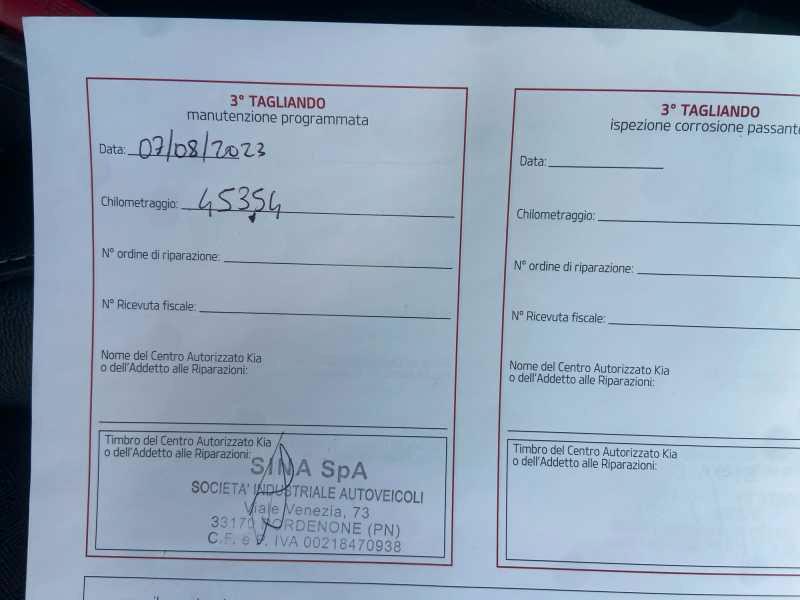 3° TAGLIANDO
manutenzione programmata
Data: 07/08/2023
Chilometraggio: 45354
N° ordine di riparazione:
N° Ricevuta fiscale:
Nome del Centro Autorizzato Kia
o dell'Addetto alle Riparazioni:
Timbro del Centro Autorizzato Kia
o dell'Addetto alle Riparazioni:
SINA SpA
SOCIETA' INDUSTRIALE AUTOVEICOLI
Viale Venezia, 73
33170 PORDENONE (PN)
C.F. e P. IVA 00218470938
3° TAGLIANDO
ispezione corrosione passante
Data:
Chilometraggio:
N° ordine di riparazione:
N° Ricevuta fiscale:
Nome del Centro Autorizzato Kia
o dell'Addetto alle Riparazioni:
Timbro del Centro Autorizzato Kia
o dell'Addetto alle Riparazioni: